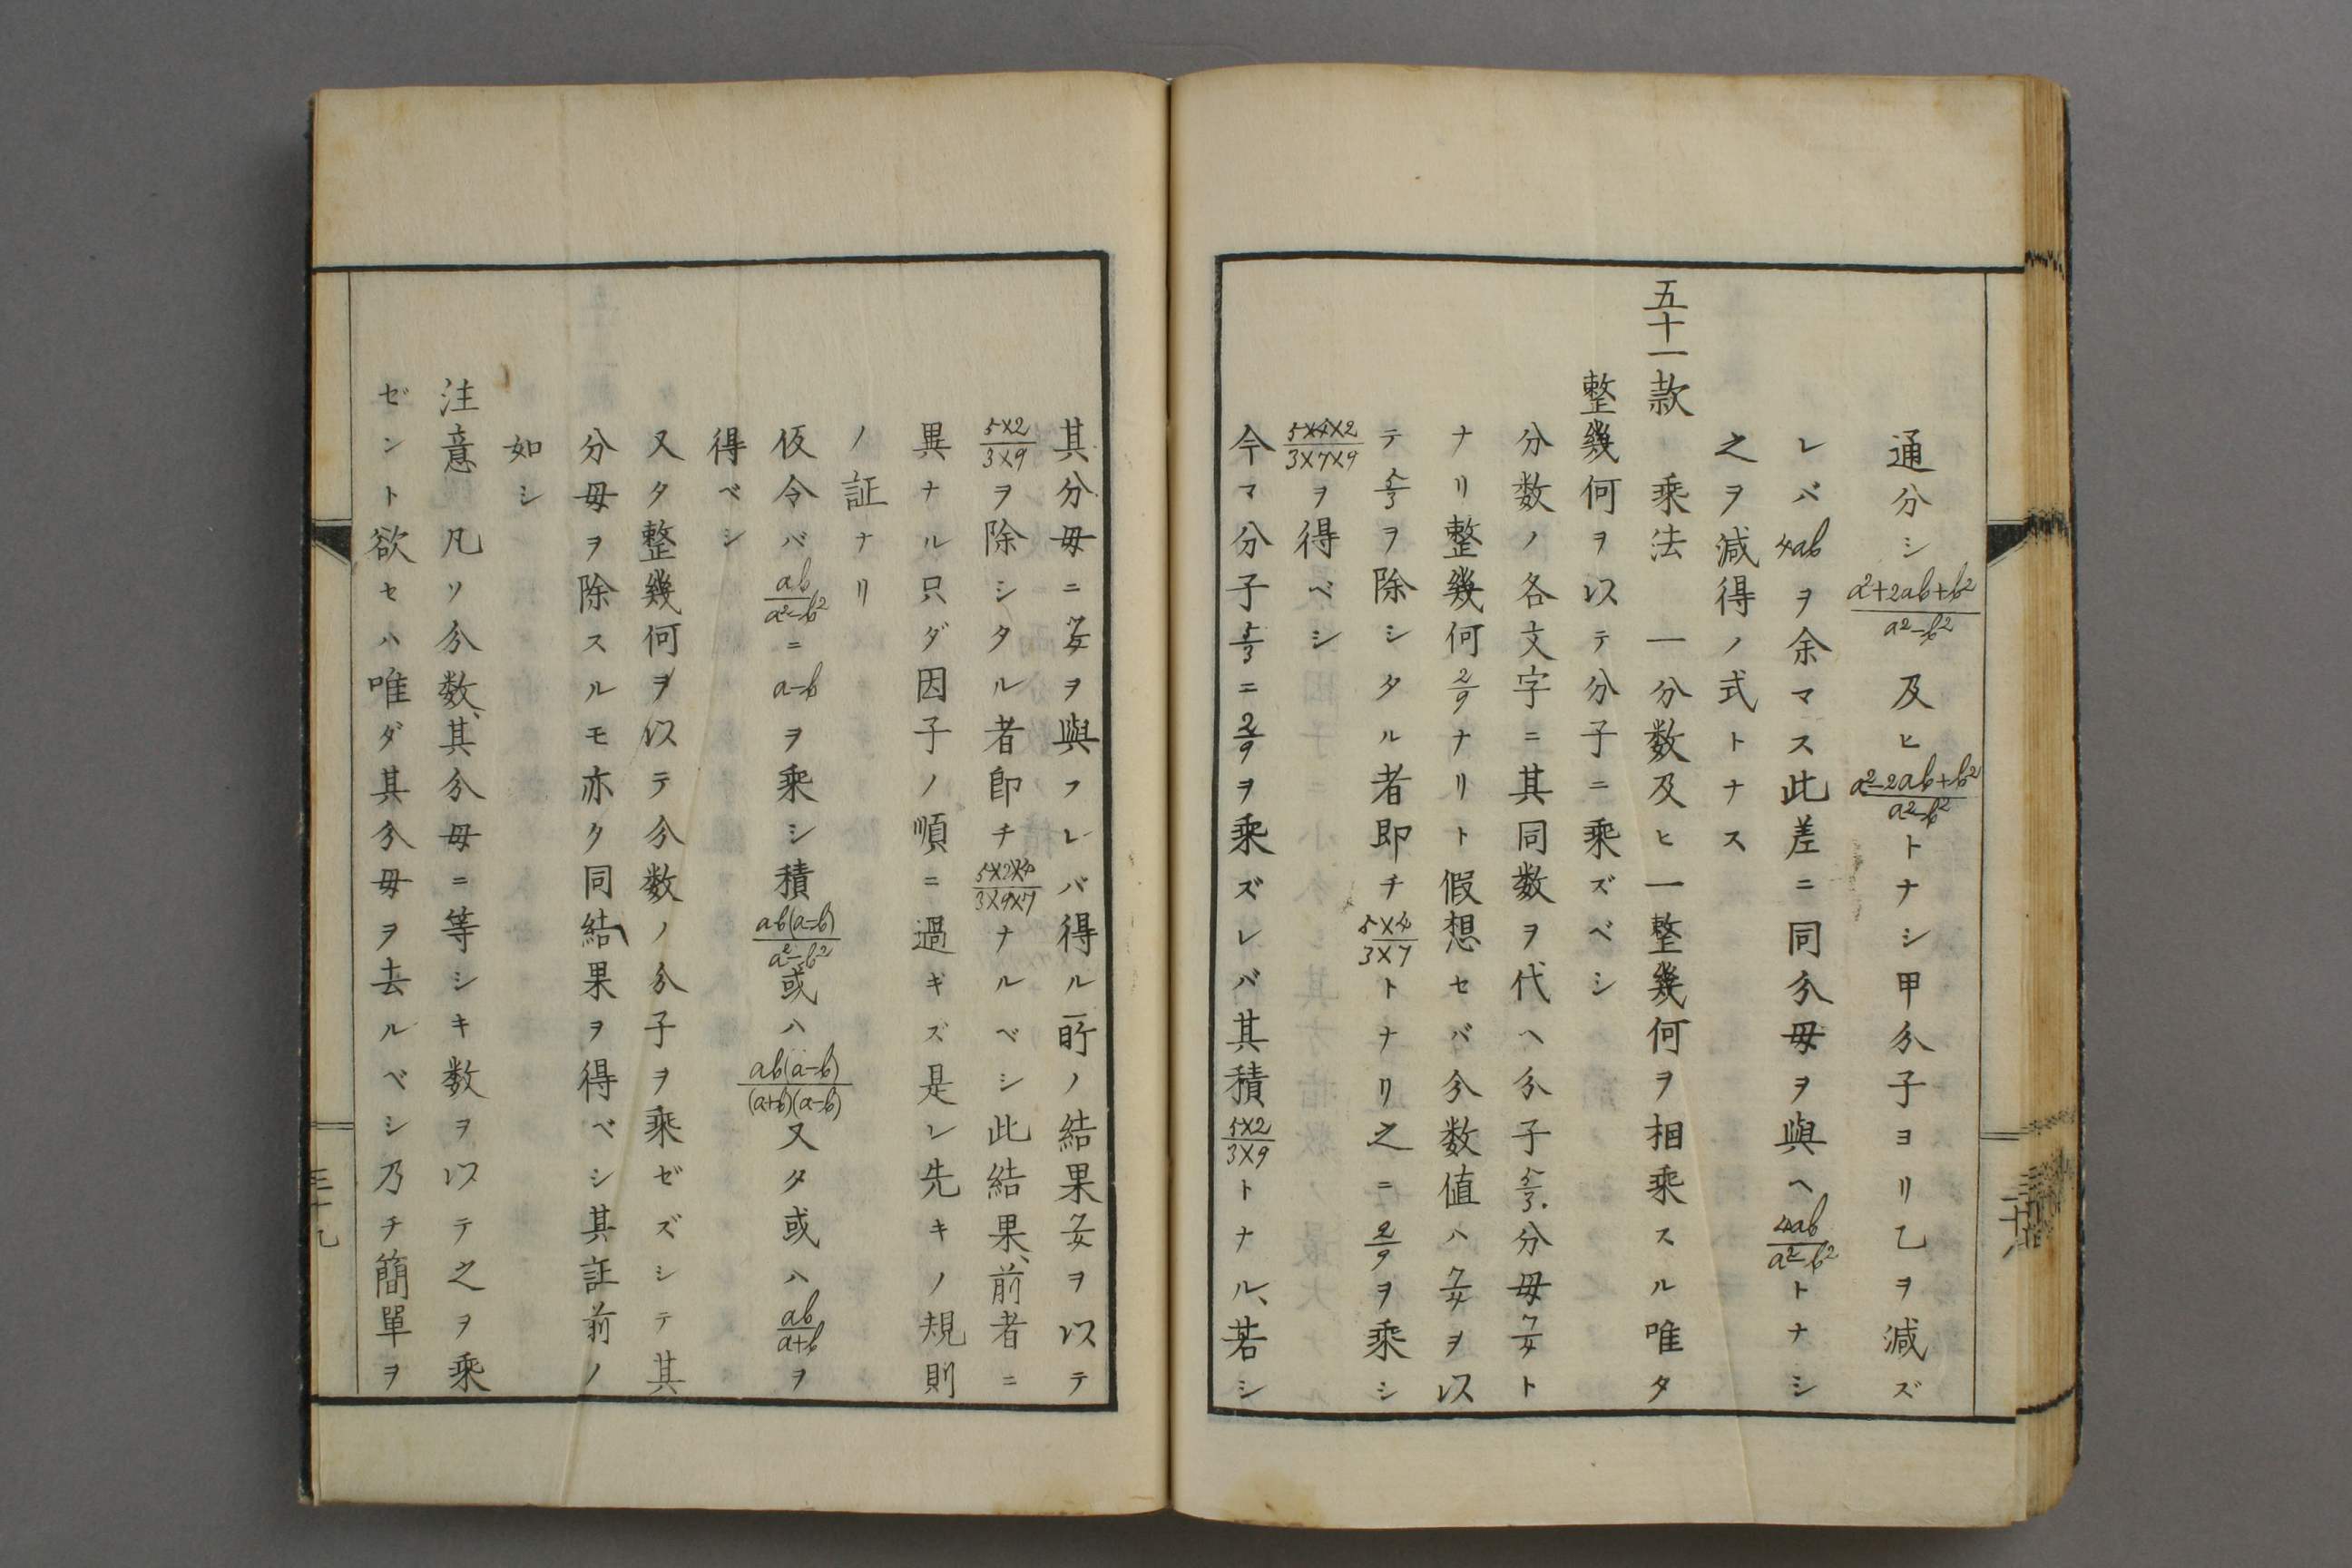 通分シ a²+2ab+b²/a²-b² 及ヒ a²-2ab+b²/a²-b² トナシ甲分子ヨリ乙ヲ減ズ
レバ 4ab ヲ余マス此差ニ同分母ヲ與ヘ 4ab/a²-b² トナシ
之ヲ減得ノ式トナス
五十一款 乘法 一分数及ヒ一整幾何ヲ相乘スル唯タ
整幾何ヲ以テ分子ニ乘ズベシ
分数ノ各文字ニ其同数ヲ代ヘ分子 5/3. 分母 7/4 ト
ナリ整幾何 2/9 ナリト假想セバ分数値ハ 7/4 ヲ以
テ 5/3 ヲ除シタル者即チ 5×4/3×7 トナリ之ニ 2/9 ヲ乘シ
5×4×2/3×7×9 ヲ得ベシ
今マ分子 5/3 ニ 2/9 ヲ乘ズレバ其積 5×2/3×9 トナル、若シ
其分母ニ 7/4 ヲ與フレバ得ル所ノ結果 7/4 ヲ以テ
5×2/3×9 ヲ除シタル者即チ 5×2×4/3×9×7 ナルベシ此結果、前者ニ
異ナル只ダ因子ノ順ニ過ギズ是レ先キノ規則
ノ証ナリ
仮令バ ab/a²-b² ニ a-b ヲ乘シ積 ab(a-b)/a²-b² 或ハ ab(a-b)/(a+b)(a-b) 又タ或ハ ab/a+b ヲ
得ベシ
又タ整幾何ヲ以テ分数ノ分子ヲ乘ゼズシテ其
分母ヲ除スルモ亦タ同結果ヲ得ベシ其証前ノ
如シ
注意 凡ソ分数、其分母ニ等シキ数ヲ以テ之ヲ乘
ゼント欲セハ唯ダ其分母ヲ去ルベシ乃チ簡單ヲ
三十九